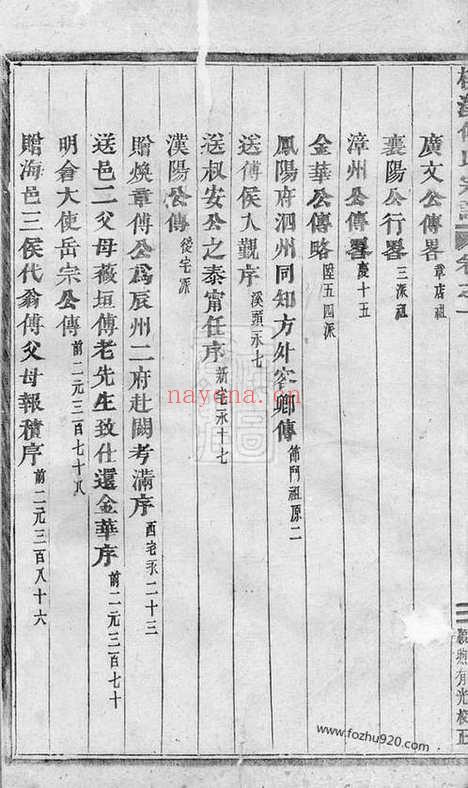 廣文公傳畧 章店祖
襄陽公行畧 三派祖
漳州公傳畧 慶十五
金華公傳略 五四派
鳳陽府泗州同知方外客卿傳 祖原二
送傅侯入覲序 溪頭永七
送叔安公之泰甯任序 新宅永十七
漢陽公傳 從宅派
贈煥章傅公為辰州二府赴闕考滿序 西宅永二十三
送邑二父母薇垣傅老先生致仕還金華序 前二元三百七十
明倉大使岳宗公傳 前二元三百七十八
贈海邑三侯代翁傅父母報積序 前二元三百八十六
nayona.cn
www.fozhu920.com